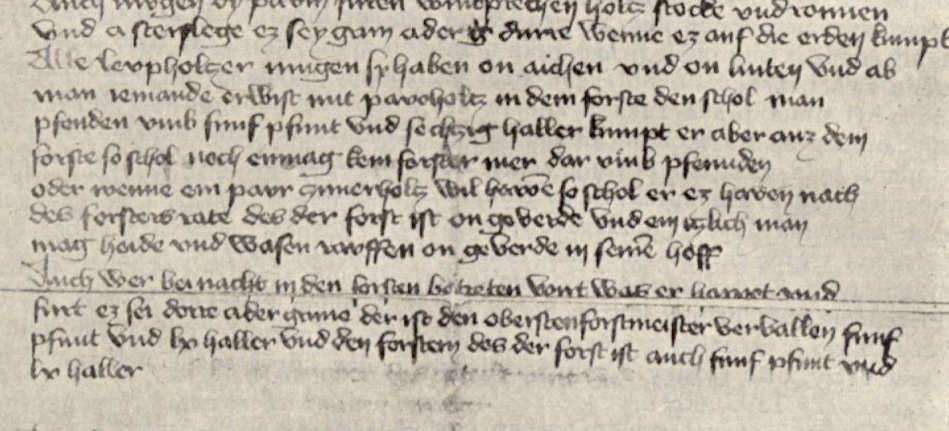 Auch mogen dy pawrn iren wintprechen holtz stocke vnd ronnen
vnd afterslege ez sey grun ader durre wenne ez auf die erden kumpt
Alle leupholtzer mugen sy haben on aichen vnd on linten vnd ab
man iemande erwist mit pawholtz in dem forste den schol man
pfenden vmb funf pfunt vnd sechtzig haller kumpt er aber auz dem
forste so schol noch enmag kein forster mer dar vmb pfennden
oder wenne ein pawr zimerholtz wil hawen so schol er ez hawen nach
des forsters rate des der forst ist on geverde vnd ein itzlich man
mag heide vnd wasen rawffen on geverde in seinem hoff
Auch wer bei nacht in den forsten betreten wirt was er hawet vnd
furt ez sei dorre ader grune der ist den obersten forstmeister vervallen funf
pfunt vnd lx haller vnd den forstern des der forst ist auch funf pfunt vnd
lx haller